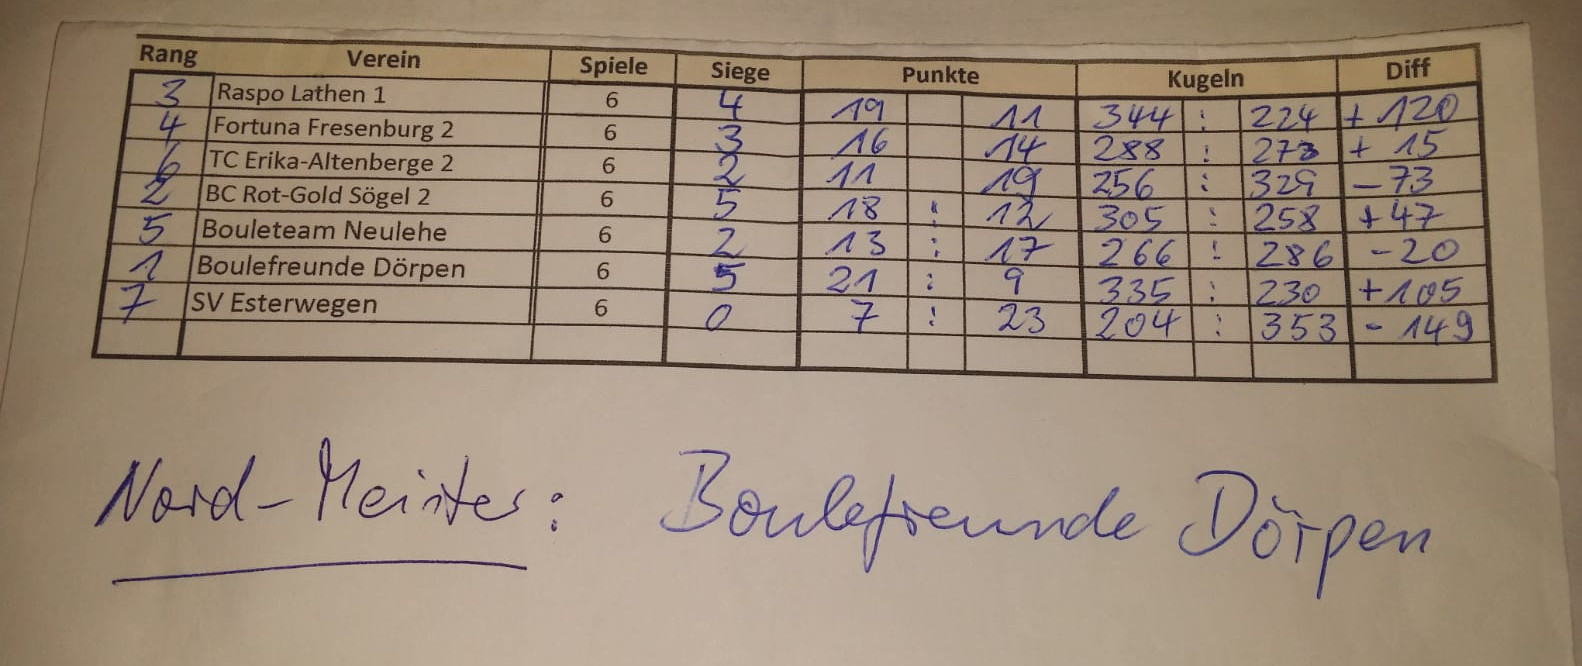 Rang Verein Spiele Siege Punkte Kugeln Diff
3 Raspo Lathen 1 6 4 19 11 344 : 224 + 120
4 Fortuna Fresenburg 2 6 3 16 14 288 : 273 + 15
6 TC Erika-Altenberge 2 6 2 11 19 256 : 329 - 73
2 BC Rot-Gold Sögel 2 6 5 18 : 12 305 : 258 + 47
5 Bouleteam Neulehe 6 2 13 : 17 266 : 286 - 20
1 Boulefreunde Dörpen 6 5 21 : 9 335 : 230 + 105
7 SV Esterwegen 6 0 7 : 23 204 : 353 - 149
Nord-Meister: Boulefreunde Dörpen